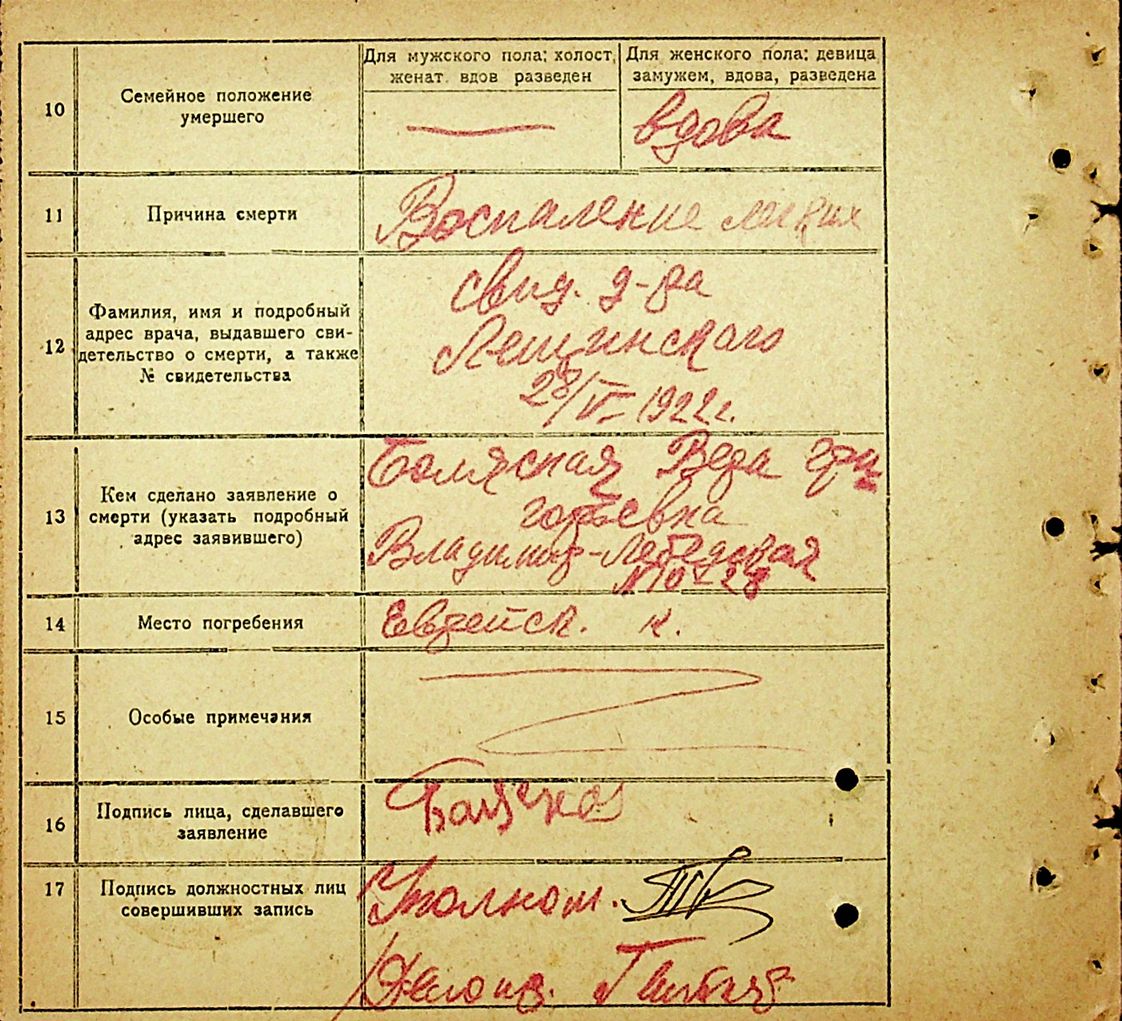 Для мужского пола: холост, женат вдов разведен
Для женского пола: девица замужем, вдова, разведена
10
Семейное положение
умершего
вдова
11
Причина смерти
Воспаление легких
12
Фамилия, имя и подробный
адрес врача, выдавшего сви-
детельство о смерти, а также
№ свидетельства
свид. д-ра
Лещинского
28/VI 1922 г.
13
Кем сделано заявление о
смерти (указать подробный
адрес заявившего)
Болясная Вера Гри
горьевна
Владимир-Лебедевая
№ 10-28
14
Место погребения
Еврейск. к.
15
Особые примечания
16
Подпись лица, сделавшего
заявление
17
Подпись должностных лиц
совершивших запись
Уполном.
Делопр.